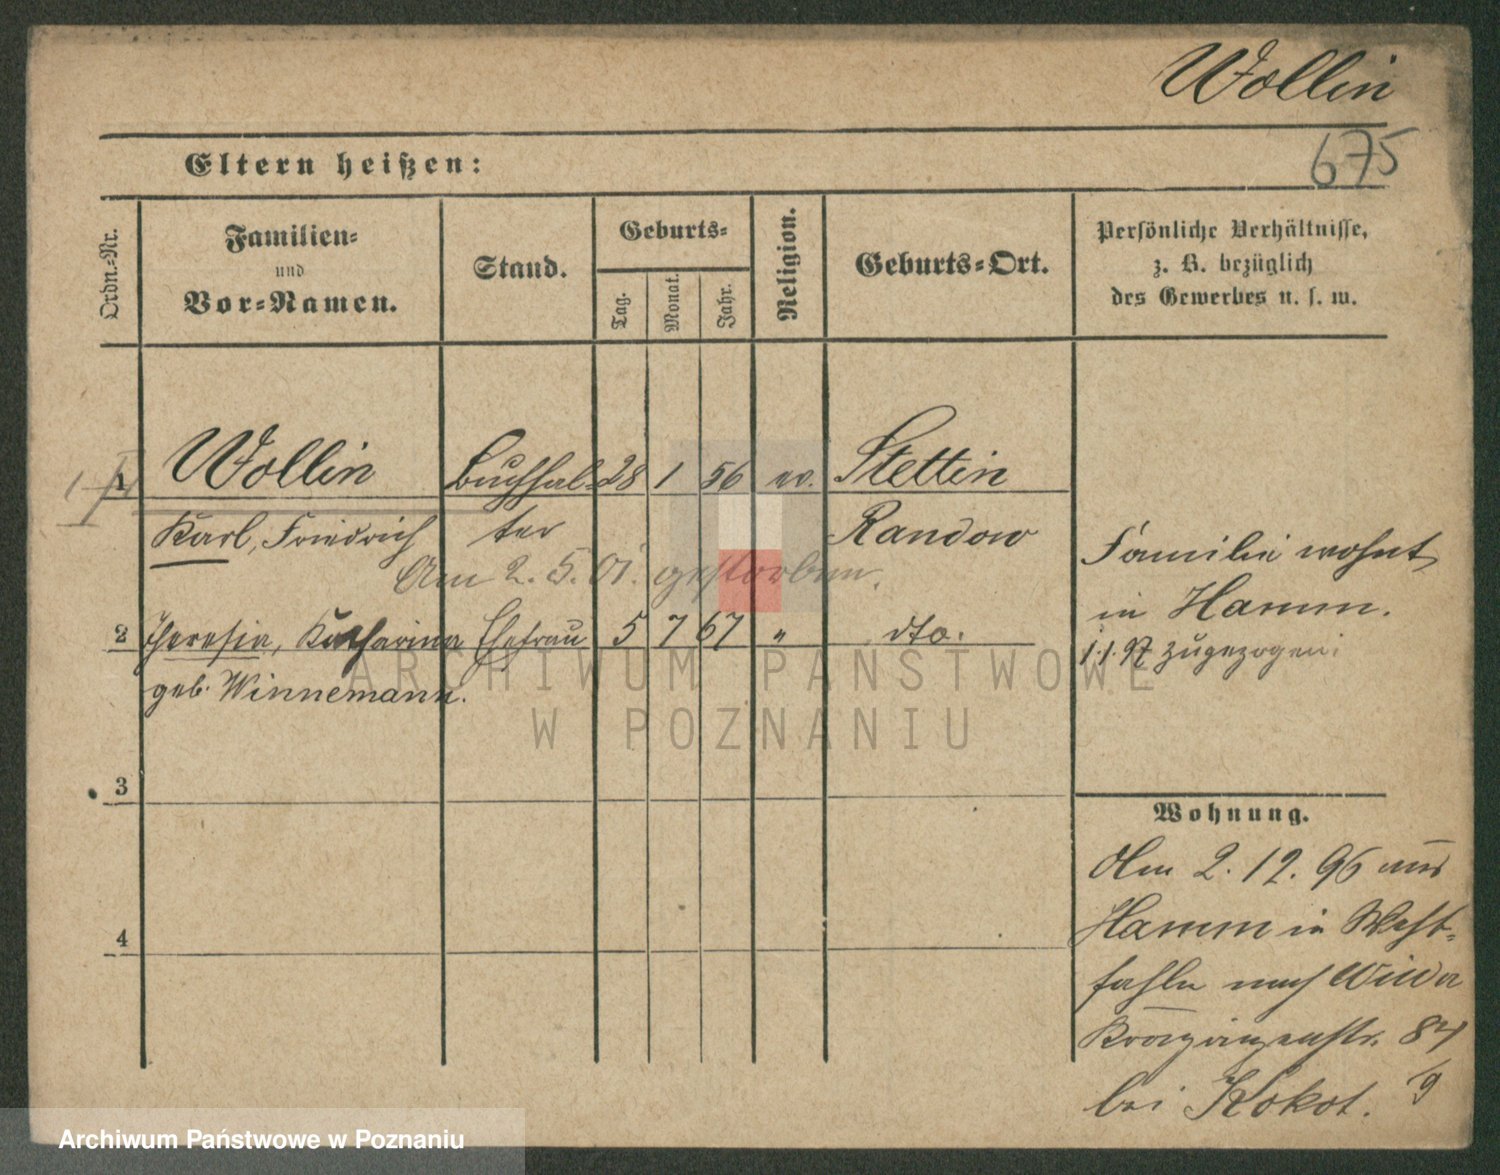 Wollin
675
Eltern heißen:
Ordn.-Nr.
Familien-
und
Vor-Namen.
Stand.
Geburts-
Tag.
Monat.
Jahr.
Religion.
Geburts-Ort.
Persönliche Verhältnisse,
z. B. bezüglich
des Gewerbes u. s. w.
1 Wollin Buchhal- 28 1 56 ev. Stettin
Karl, Friedrich ter Randow
Am 2. 5. 01. gestorben.
Familie wohnt
in Hamm.
1.1.97 zugezogen
2 Theresia, Katharina Ehefrau 5 7 67 " dto.
geb. Winnemann.
3
4
Wohnung.
Am 2. 12. 96 aus
Hamm in West-
fahln nach Wilda
Kronprinzenstr. 84
bei Kokot. 9
ARCHIWUM PAŃSTWOWE
W POZNANIU
Archiwum Państwowe w Poznaniu